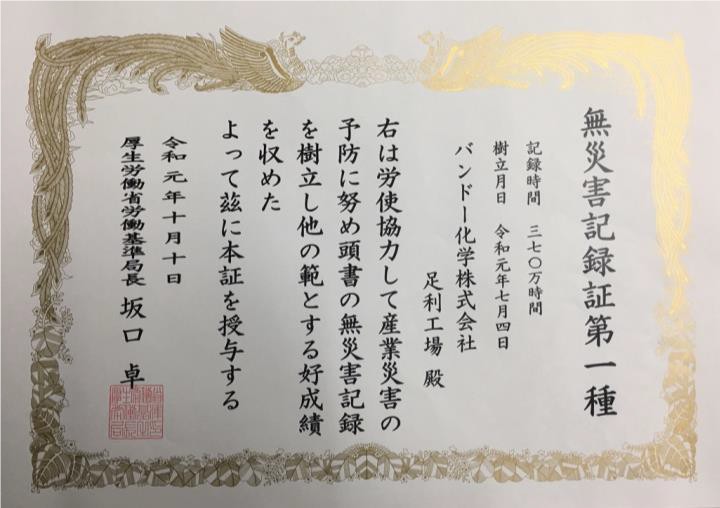 無災害記録証第一種
記録時間 三七〇万時間
樹立月日 令和元年七月四日
バンドー化学株式会社
足利工場 殿
右は労使協力して産業災害の
予防に努め頭書の無災害記録
を樹立し他の範とする好成績
を収めた
よって茲に本証を授与する
令和元年十月十日
厚生労働省労働基準局長 坂口 卓